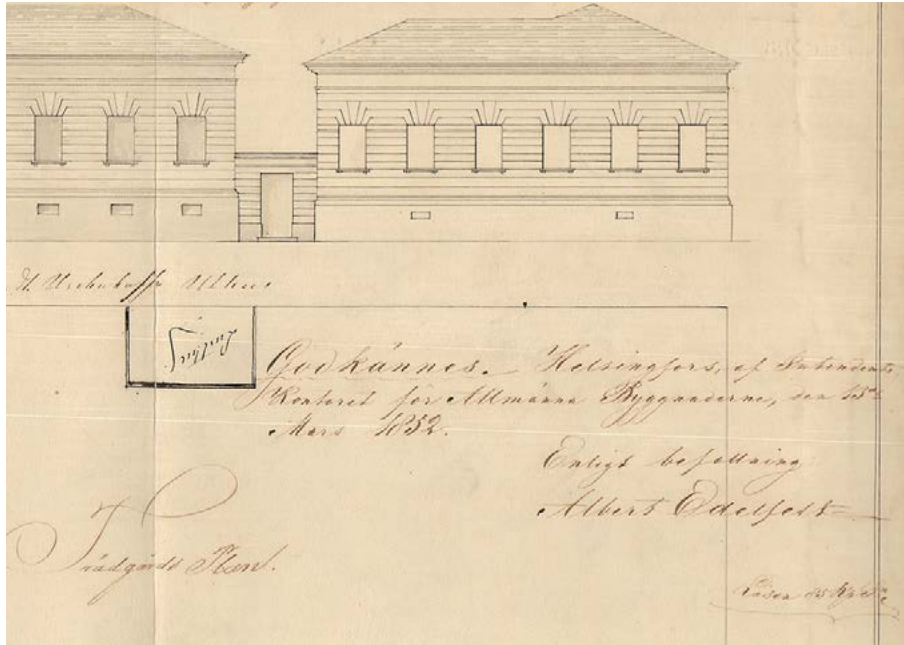 Uthus
Lusthus
Godkännes. Helsingfors, af Intendents
Kontoret för Allmänna Byggnaderne, den 13de
Mars 1852.
Enligt befallning
Albert Edelfelt
Trädgårds Plan.
Lösen 85 Kop. S:r